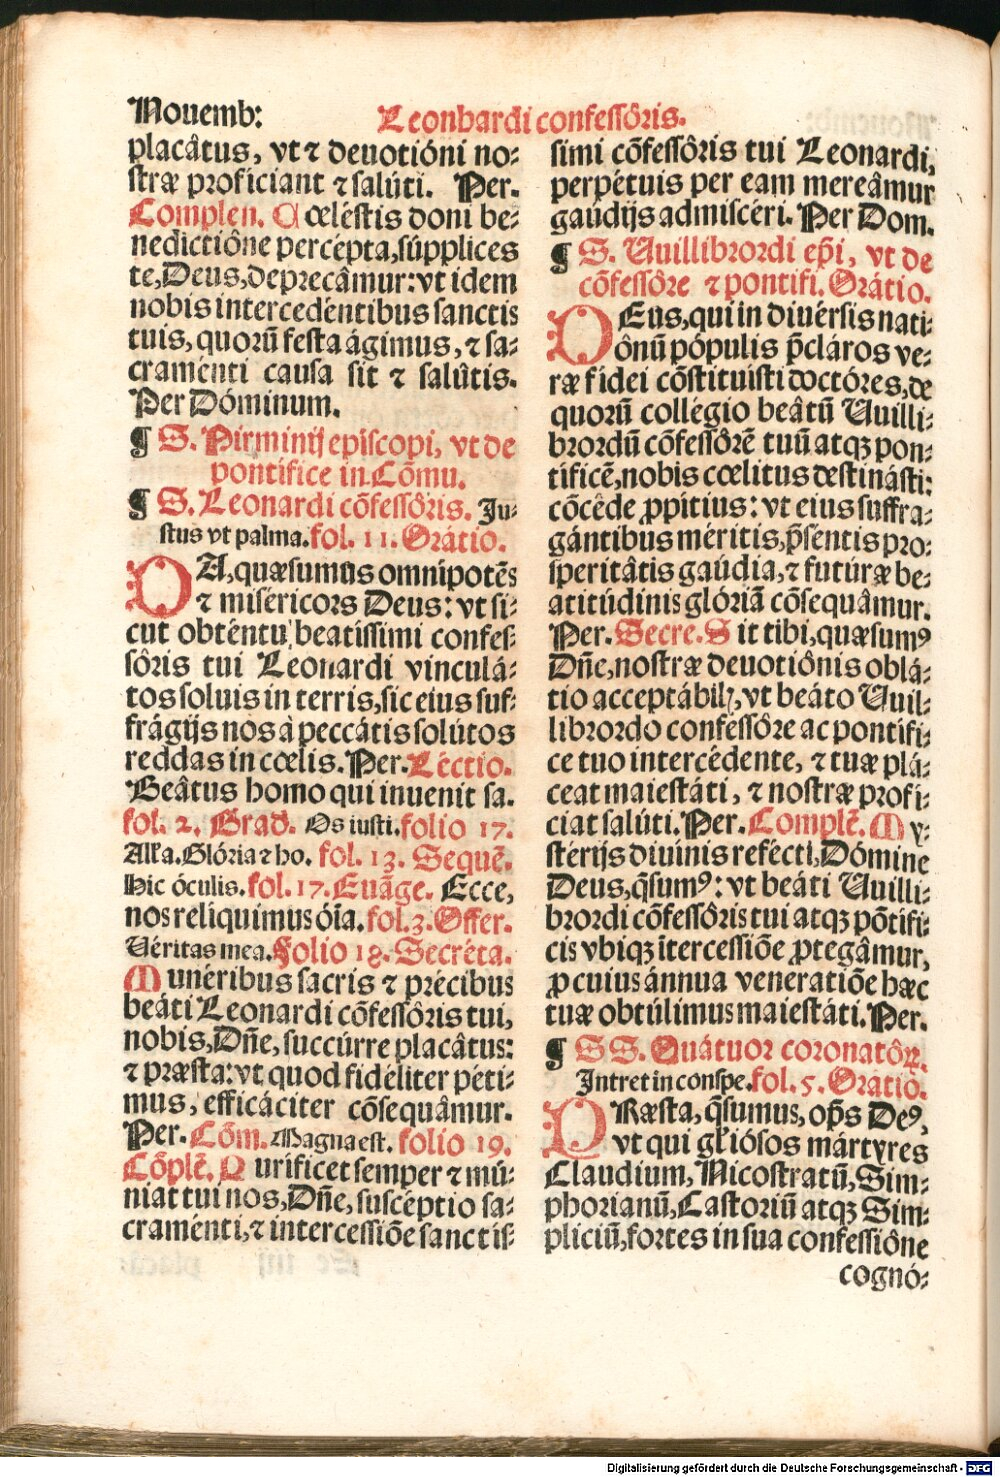 Nouemb:
Leonhardi confessôris.
placâtus, vt ⁊ deuotióni no-
stræ proficiant ⁊ salúti. Per.
Complen. Cœléstis doni be-
nedictiône percépta, súpplices
te, Deus, deprecâmur: vt idem
nobis intercedéntibus sanctis
tuis, quorũ festa ágimus, ⁊ sa-
craménti causa sit ⁊ salûtis.
Per Dóminum.
¶ S. Pirminij episcopi, vt de
pontifice in Cõmu.
¶ S. Leonardi cõfessôris. Ju-
stus vt palma. fol. 11. Orátio.
DA, quæsumus omnipotẽs
⁊ miséricors Deus: vt si-
cut obténtu beatíssimi confes-
sôris tui Leonardi vinculâ-
tos soluis in terris, sic eius suf-
frágijs nos à peccátis solútos
reddas in cœlis. Per. Léctio.
Beâtus homo qui inuenit sa.
fol. 2. Grad. Os iusti. folio 17.
Alla. Glória ⁊ ho. fol. 13. Sequẽ.
Hic óculis. fol. 17. Euãge. Ecce,
nos reliquimus óĩa. fol. 3. Offer.
Véritas mea. Folio 18. Secréta.
Munéribus sacris ⁊ précibus
beáti Leonardi cõfessôris tui,
nobis, Dñe, succúrre placâtus:
⁊ præsta: vt quod fidéliter péti-
mus, efficáciter cõsequâmur.
Per. Cõm. Magna est. folio 19.
Cõplẽ. Purificet semper ⁊ mú-
niat tui nos, Dñe, suscéptio sa-
craménti, ⁊ intercessiõe sanctis-
simi cõfessôris tui Leonardi,
perpétuis per eam mereâmur
gaúdijs admiscéri. Per Dom.
¶ S. Vuillibrordi ep̃i, vt de
cõfessôre ⁊ pontifi. Orátio.
DEus, qui in diuérsis nati-
ônũ pópulis p̃cláros ve-
ræ fidei cõstituisti doctóres, de
quorũ collégio beâtũ Vuilli-
brordũ cõfessôrẽ tuũ atqꝫ pon-
tificẽ, nobis cœlitus destinásti:
cõcéde ꝓpitius: vt eius suffra-
gántibus méritis, p̃séntis pro-
speritâtis gaúdia, ⁊ futúræ be-
atitúdinis glóriã cõsequâmur.
Per. Secre. Sit tibi, quæsumꝰ
Dñe, nostræ deuotiônis oblá-
tio acceptábilꝭ, vt beáto Vuil-
librordo confessôre ac pontifi-
ce tuo intercédente, ⁊ tuæ plá-
ceat maiestáti, ⁊ nostræ profi-
ciat salúti. Per. Complẽ. My-
stérijs diuínis refécti, Dómine
Deus, q̃sumꝰ: vt beáti Vuilli-
brordi cõfessôris tui atqꝫ põtifi-
cis vbiqꝫ ĩtercessiõe ꝓtegâmur,
ꝓ cuius ánnua veneratiõe hæc
tuæ obtúlimus maiestáti. Per.
¶ SS. Quátuor coronatôꝝ.
Intret in conspe. fol. 5. Oratio.
PRæsta, q̃sumus, op̃s Deꝰ,
vt qui gl̃iósos mártyres
Claudium, Nicostratũ, Sim-
phorianũ, Castoriũ atqꝫ Sim-
pliciũ, fortes in sua confessiône
cognó-
Digitalisierung gefördert durch die Deutsche Forschungsgemeinschaft - DFG